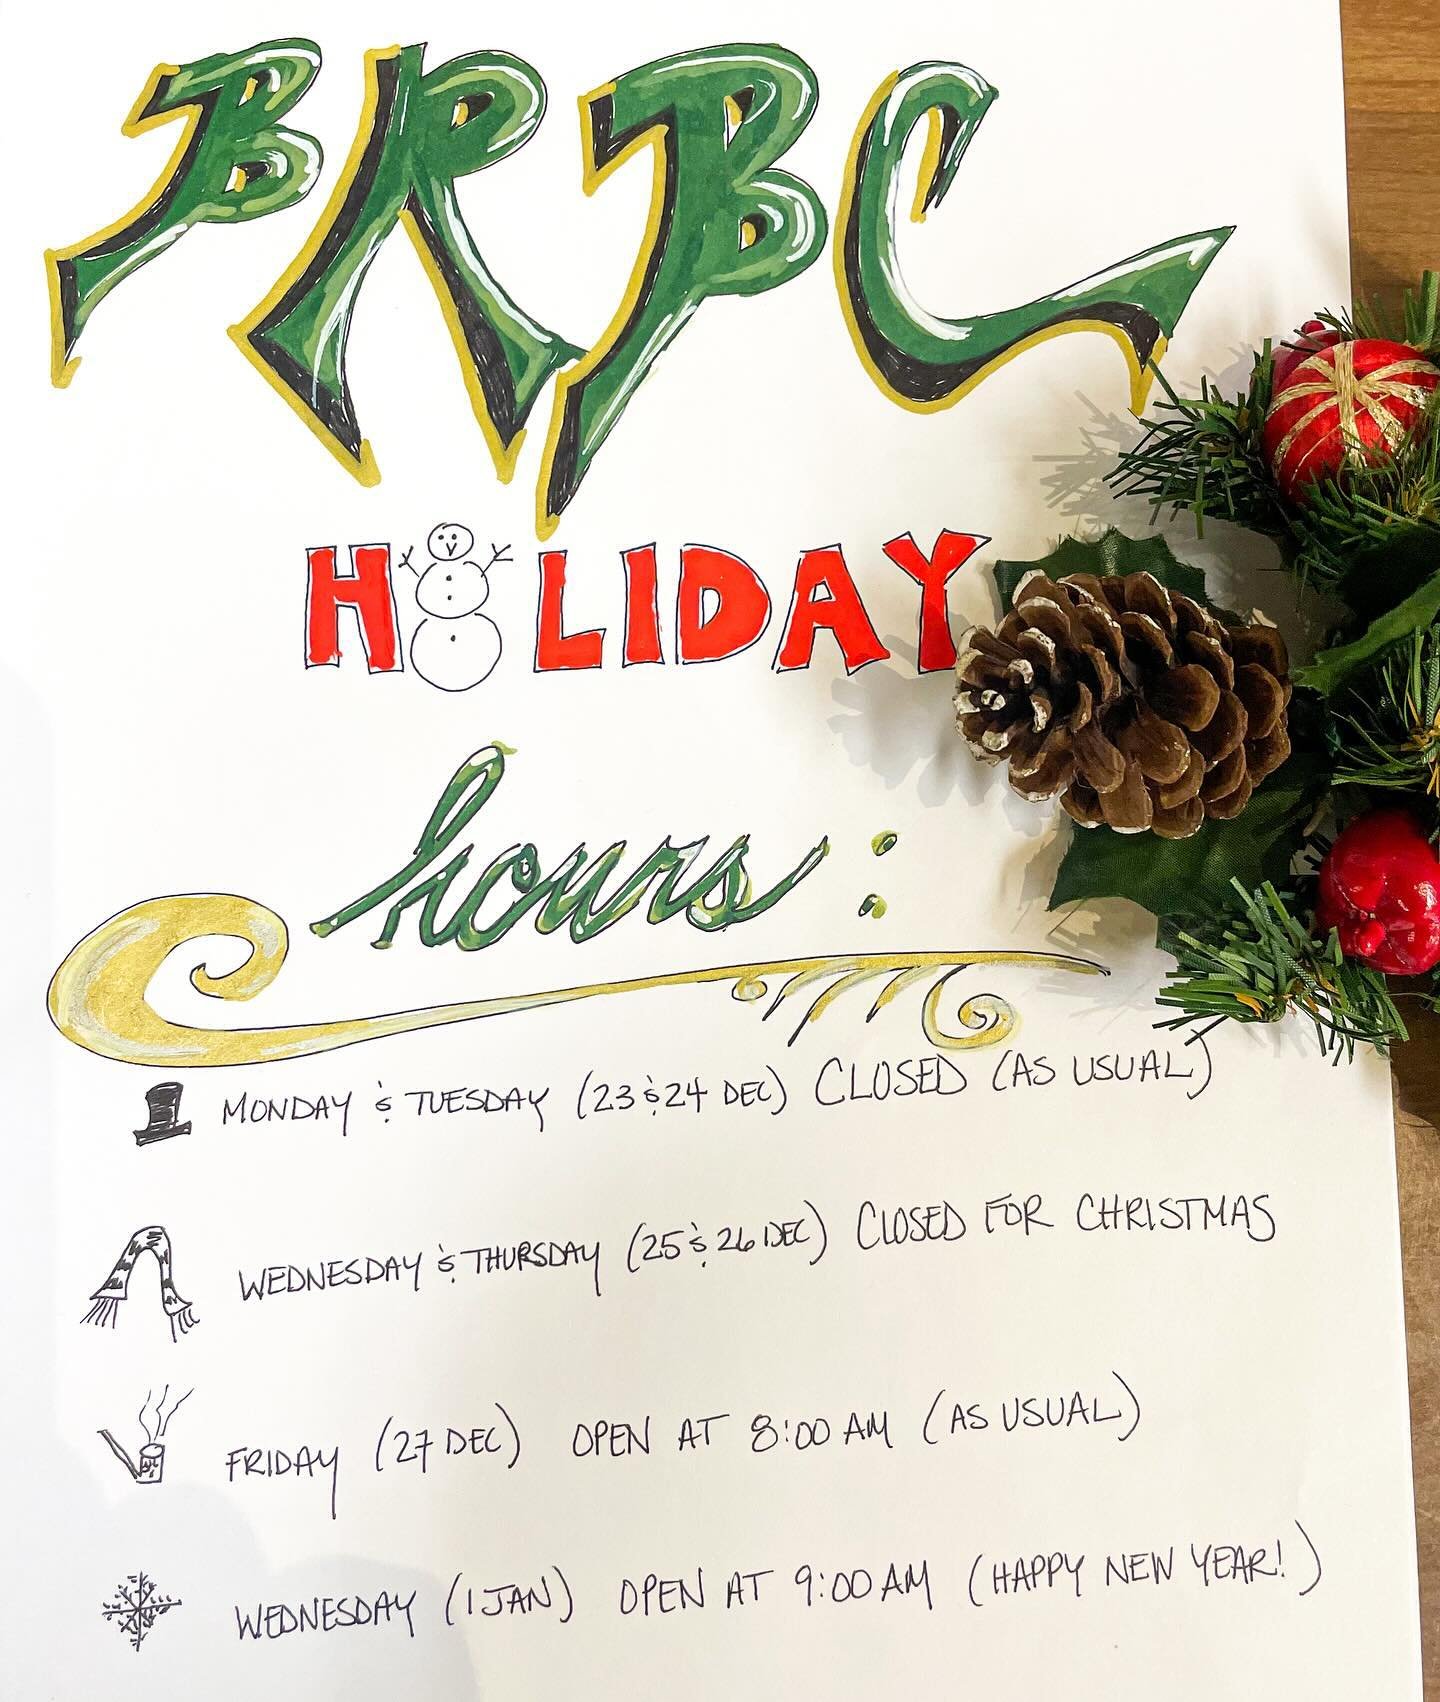 BRBC
HOLIDAY
hours:
MONDAY & TUESDAY (23 & 24 DEC) CLOSED (AS USUAL)
WEDNESDAY & THURSDAY (25 & 26 DEC) CLOSED FOR CHRISTMAS
FRIDAY (27 DEC) OPEN AT 8:00 AM (AS USUAL)
WEDNESDAY (1 JAN) OPEN AT 9:00 AM (HAPPY NEW YEAR!)